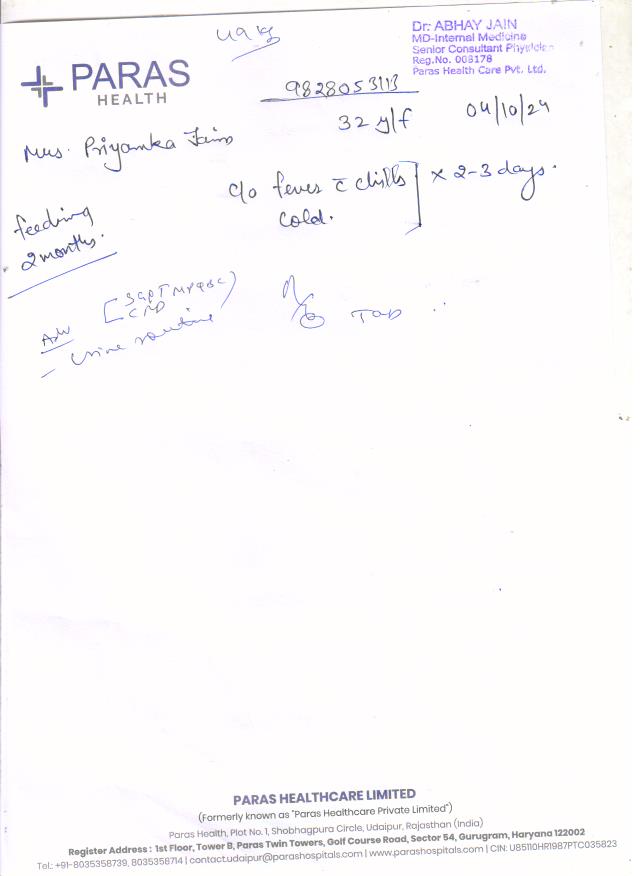 49 kg
Dr. ABHAY JAIN
MD-Internal Medicine
Senior Consultant Physician
Reg.No. 008178
Paras Health Care Pvt. Ltd.
PARAS
HEALTH
9828053113
32 y/f 04/10/24
Mrs. Priyamka Jain
c/o fever c̄ chills × 2-3 days.
cold.
feeding
2 months.
Adv
SGPT MP QBC
- Urine routine
Tab
PARAS HEALTHCARE LIMITED
(Formerly known as "Paras Healthcare Private Limited")
Paras Health, Plot No. 1, Shobhagpura Circle, Udaipur, Rajasthan (India)
Register Address : 1st Floor, Tower B, Paras Twin Towers, Golf Course Road, Sector 54, Gurugram, Haryana 122002
Tel.: +91-8035358739, 8035358714 | contact.udaipur@parashospitals.com | www.parashospitals.com | CIN: U85110HR1987PTC035823